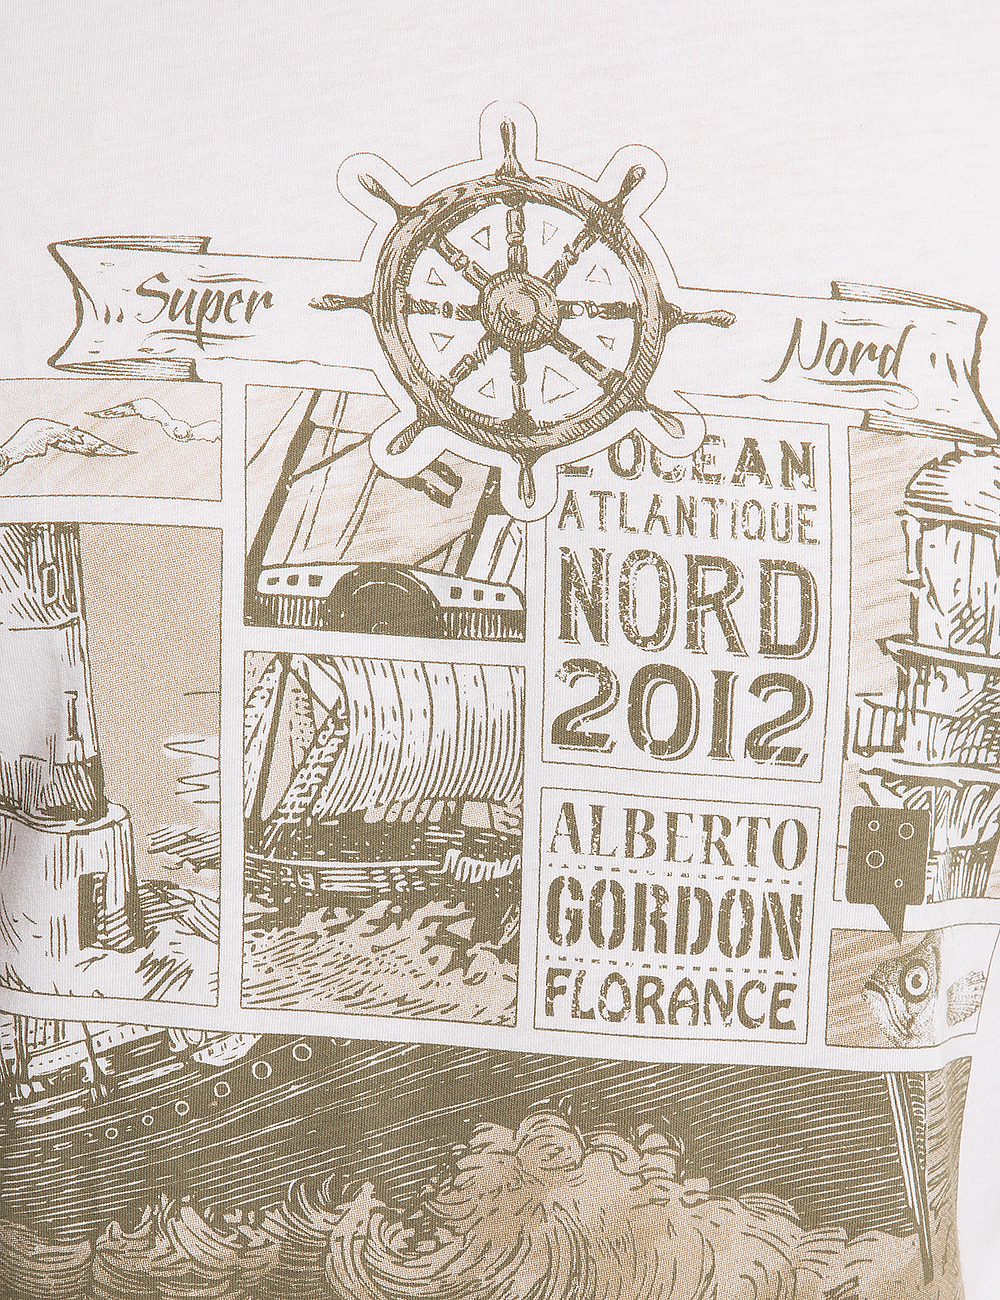 Super
Nord
L'OCEAN
ATLANTIQUE
NORD
2012
ALBERTO
GORDON
FLORANCE